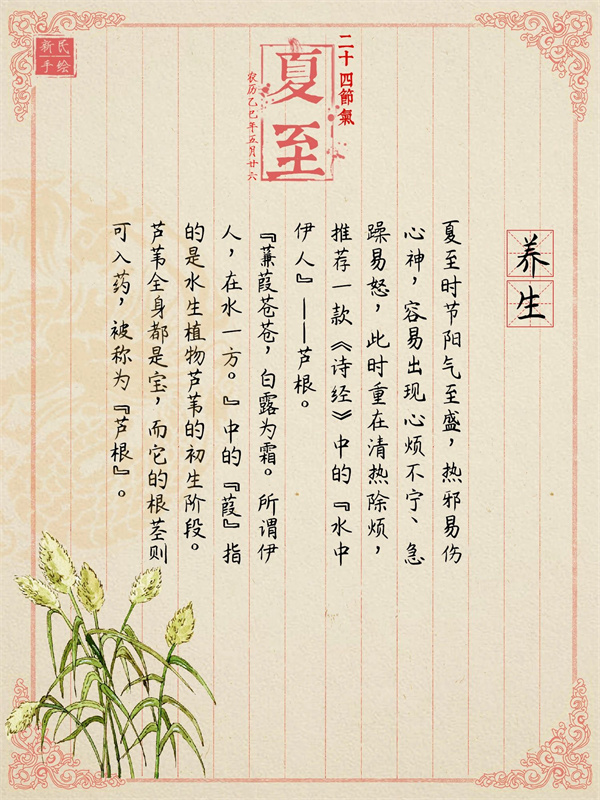 新民
手绘
二十四節氣
夏至
农历乙巳年五月廿六
养生
夏至时节阳气至盛，热邪易伤
心神，容易出现心烦不宁、急
躁易怒，此时重在清热除烦，
推荐一款《诗经》中的『水中
伊人』——芦根。
『蒹葭苍苍，白露为霜。所谓伊
人，在水一方。』中的『葭』指
的是水生植物芦苇的初生阶段。
芦苇全身都是宝，而它的根茎则
可入药，被称为『芦根』。